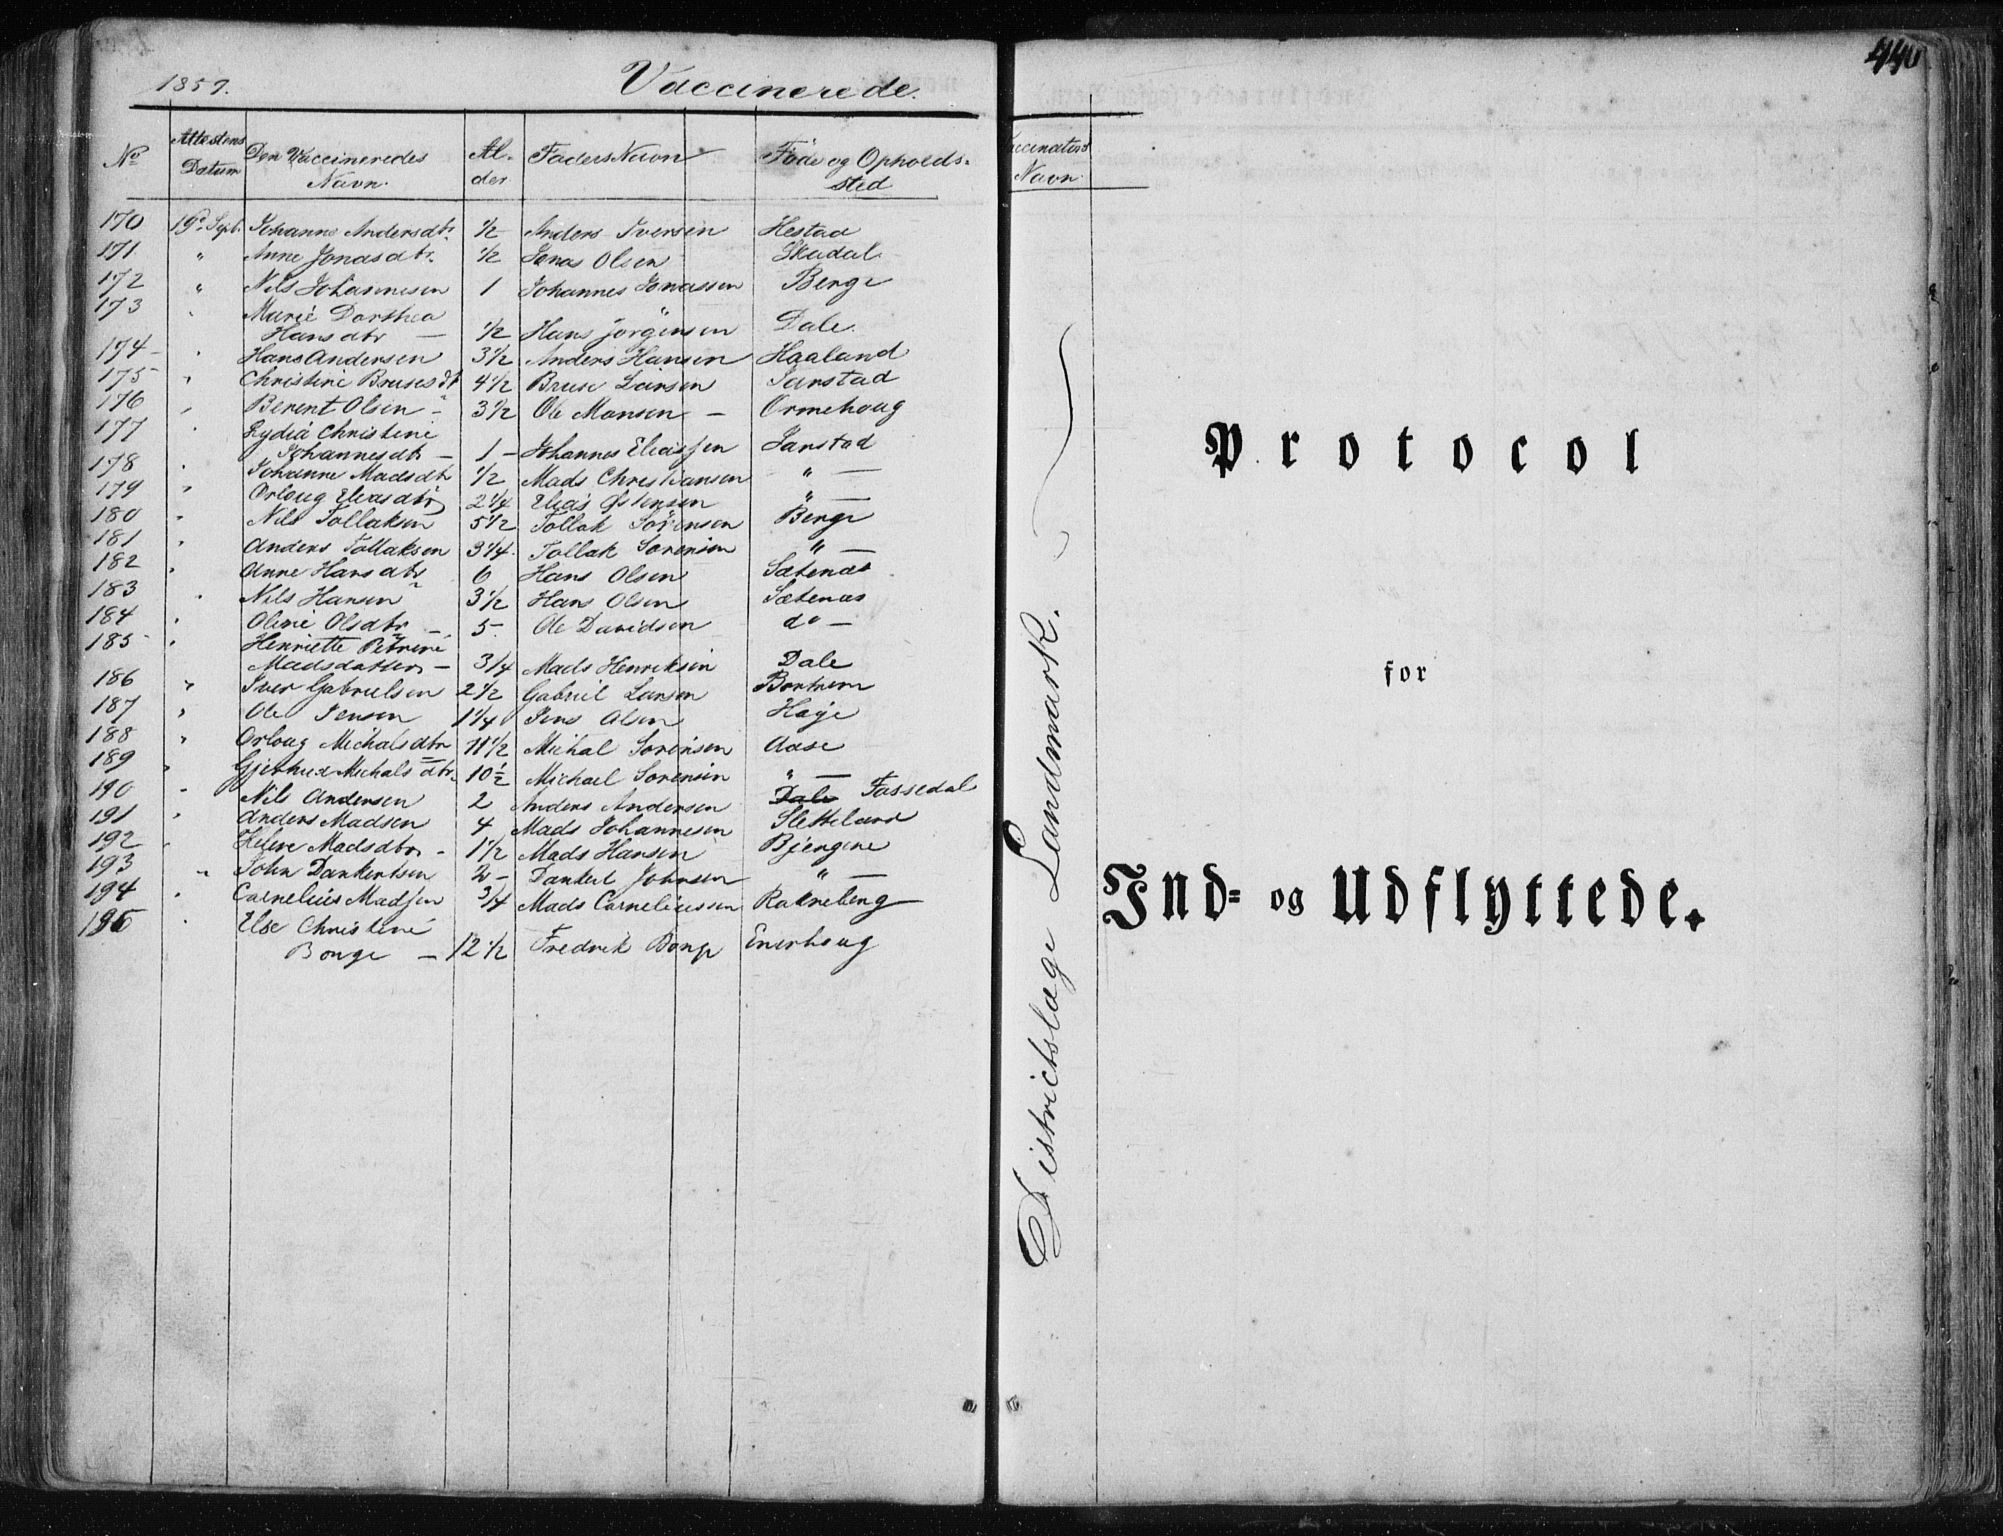 1857.
Vaccinerede.
No
Attestens Datum
Den Vaccineredes Navn.
Al-der
Faders Navn
Föde og Opholds-sted
Vaccinators Navn.
170 19d Sept. Johanne Andersdtr. 1/2 Anders Iversen Hestad
171 " Anne Jonasdtr. 1/2 Jonas Olsen Skadal
172 " Nils Johannesen 1 Johannes Jonassen Berge
173 " Marie Dorthea
Hansdtr — 1/2 Hans Jörgensen Dale
174 " Hans Andersen 3 1/2 Anders Hansen Haaland
175 " Christine Brusesdt 4 1/2 Bruse Larsen Janstad
176 " Berent Olsen - 3 1/2 Ole Monsen - Ormehoug
177 " Lydia Christine
Johannesdtr — 1 - Johannes Eliassen Janstad
178 " Johanne Madsdtr 1/2 Mads Christiansen " —
179 " Orloug Eliasdtr 2 1/4 Elias Østensen " —
180 " Nils Tollaksen 5 1/2 Tollak Sörensen Berge
181 " Anders Tollaksen 3 1/4 Tollak Sorensen " —
182 " Anne Hansdtr 6 Hans Olsen Sætenæs
183 " Nils Hansen 3 1/2 Hans Olsen Sætenæs
184 " Oline Olsdtr — 5 Ole Davidsen do —
185 " Henriette Petrine
Madsdatter - 3/4 Mads Henriksen Dale
186 " Iver Gabrielsen 2 1/2 Gabriel Larsen
187 " Ole Jensen 1 1/4 Jens Olsen Hage
188 " Orloug Michalsdtr 11 1/2 Michal Sorensen Aase
189 " Gjertrud Michalsdtr. 10 1/2 Michael Sorensen " —
190 " Nils Andersen 2 Anders Andersen Dale Fossedal
191 " Anders Madsen 4 Mads Johannesen Sletteland
192 " Helene Madsdtr - 1 1/2 Mads Hansen Bjergene
193 " John Dankertsen 2 - Dankert Johnsen " —
194 " Cornelius Madsen 3/4 Mads Corneliussen Rakneberg
195 " Else Christine
Bonge — 12 1/2 Fredrik Bonge Enerhoug
Districtslæge Landmark.
440
Protocol
for
Ind- og Udflyttede.